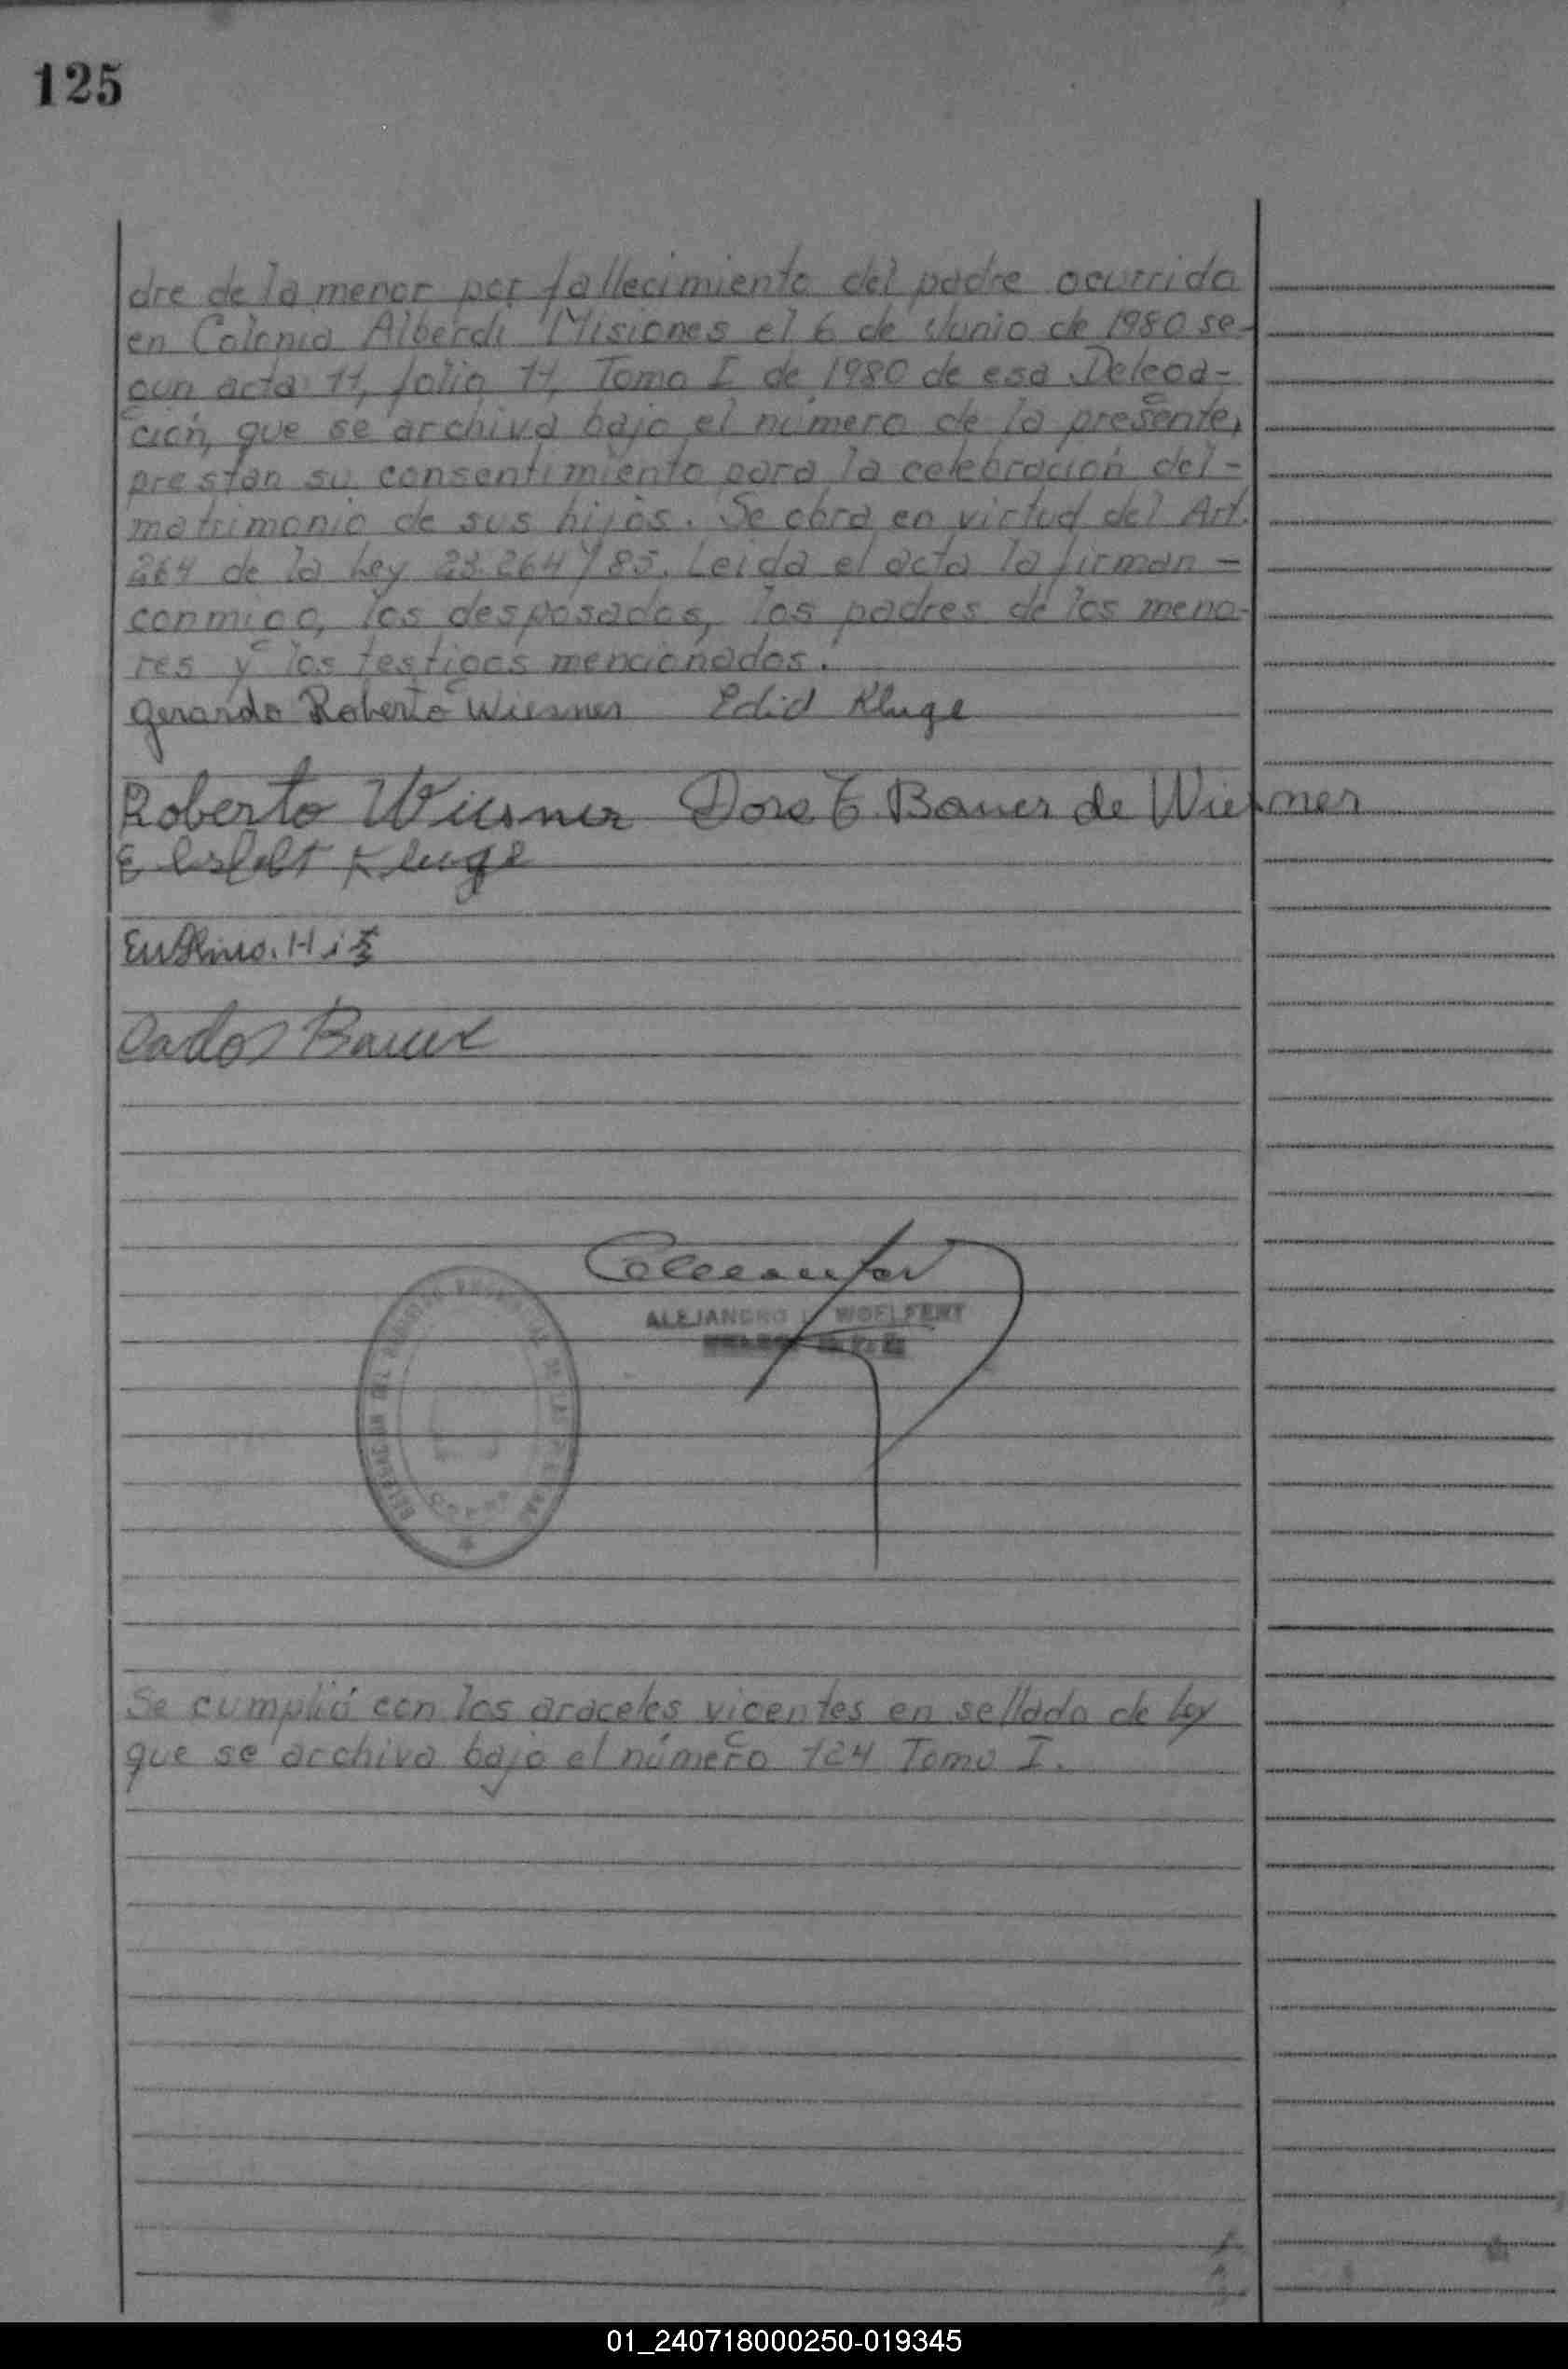 125
dre de la menor por fallecimiento del padre ocurrida
en Colonia Alberdi Misiones el 6 de Junio de 1980 se-
gun acta 11, folio 11, Tomo I de 1980 de esa Delega-
ción, que se archiva bajo el número de la presente,
prestan su consentimiento para la celebración del-
matrimonio de sus hijos. Se obra en virtud del Art.
264 de la Ley 23.264/85. Leida el acta la firman-
conmigo, los desposados, los padres de los meno-
res y los testigos mencionados.
Gerardo Roberto Wiesner Edid Kluge
Roberto Wiesner Dora E. Bauer de Wiesner
Kluge
Carlos Bauer
ALEJANDRO WOELFERT
Se cumplió con los araceles vigentes en sellado de Ley
que se archiva bajo el número 124 Tomo I.
01_240718000250-019345